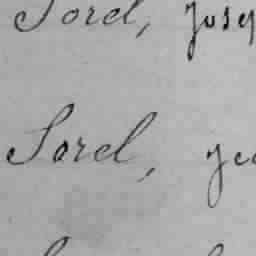 Sorel, Jose
Sorel, Jea